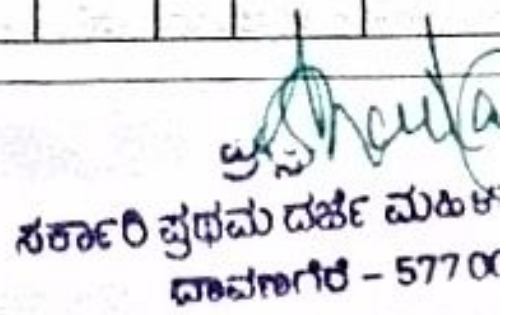 ಸರ್ಕಾರಿ ಪ್ರಥಮ ದರ್ಜೆ ಮಹಿಳ
ದಾವಣಗೆರೆ – 577 00